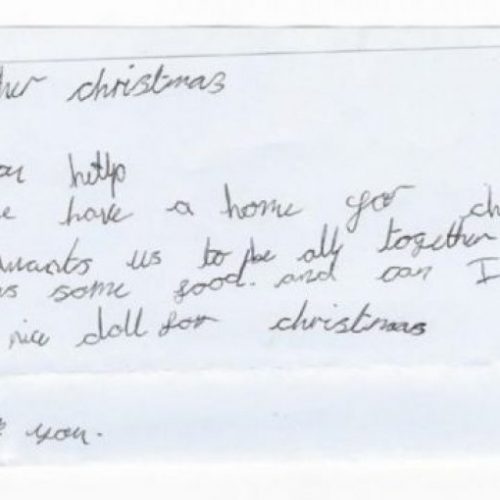 her christmas
ou help
e have a home for ch
wants us to be all together
s some food. and can I
nice doll for christmas
you.